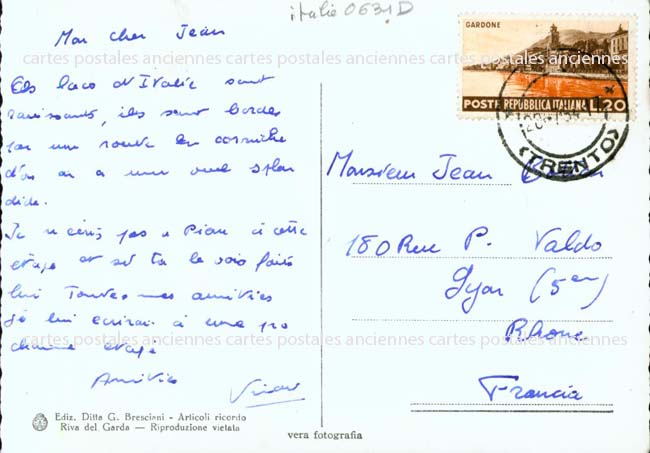 italie 0631 D
Mon cher Jean
Les lacs d'Italie sont
ravissants, ils sont bordés
par une route en corniche
d'où on a une vue splen
dide.
Je n'écris pas à
cette
étape et si tu le vois fais
lui Toutes mes amitiés
Je lui écrirai à une pro
chaine étape
Amitiés
GARDONE
POSTE REPUBBLICA ITALIANA L.20
TRENTO
Monsieur Jean
180 Rue P. Valdo
Lyon (5em)
Rhone
Francia
cartes postales anciennes cartes postales anciennes cartes postales anciennes
cartes postales anciennes cartes postales anciennes cartes postales anciennes
Ediz. Ditta G. Bresciani - Articoli ricordo
Riva del Garda — Riproduzione vietata
vera fotografia